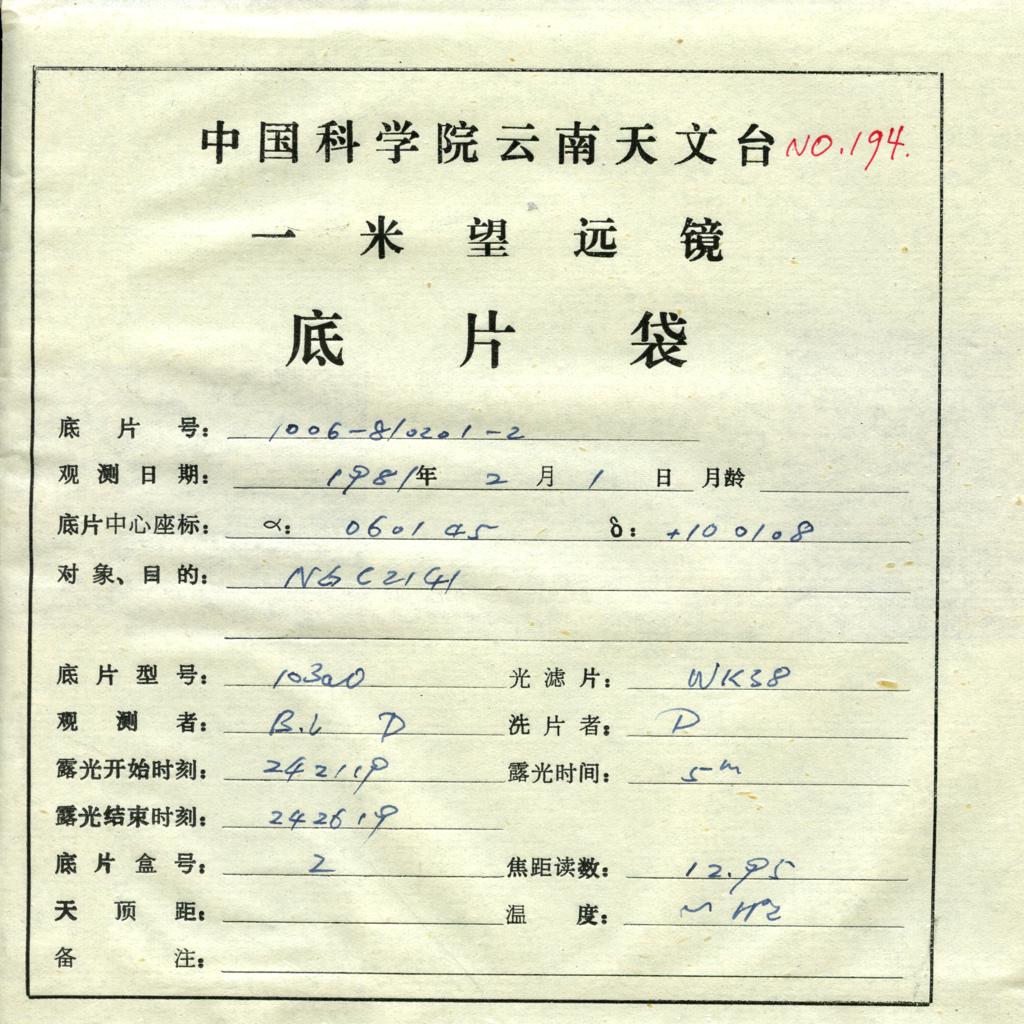 中国科学院云南天文台 NO.194.
一米望远镜
底片袋
底片号: 1006-810201-2
观测日期: 1981年 2月 1日 月龄
底片中心座标: α: 060145 δ: +100108
对象、目的: NGC2141
底片型号: 103aO 光滤片: WK38
观测者: B.L D 洗片者: D
露光开始时刻: 242119 露光时间: 5m
露光结束时刻: 242619
底片盒号: 2 焦距读数: 12.95
天顶距: 温度:
备注: